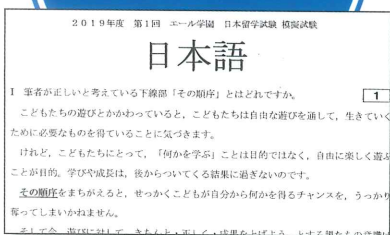 2019年度 第1回 エール学園 日本留学試験 模擬試験
日本語
Ⅰ 筆者が正しいと考えている下線部「その順序」とはどれですか。 1
こどもたちの遊びとかかわっていると,こどもたちは自由な遊びを通して,生きていく
ために必要なものを得ていることに気づきます。
けれど,こどもたちにとって,「何かを学ぶ」ことは目的ではなく,自由に楽しく遊ぶ
ことが目的。学びや成長は,後からついてくる結果に過ぎないのです。
その順序をまちがえると,せっかくこどもが自分から何かを得るチャンスを,うっかり
奪ってしまいかねません。
そして今,遊びに対して,きちんと・正しく・成果をとげよう,とする親たちの意識